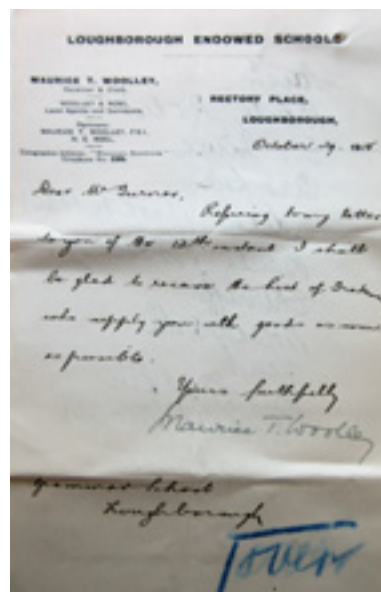 LOUGHBOROUGH ENDOWED SCHOOLS
MAURICE T. WOOLLEY,
RECTORY PLACE,
LOUGHBOROUGH,
October 19. 191
Dear Mr Turner,
Refering to my letter
to you of the 12th instant I shall
be glad to receive the list of
who supply you with goods as soon
as possible.
Yours faithfully
Maurice T. Woolley
Grammar School
Loughborough
over